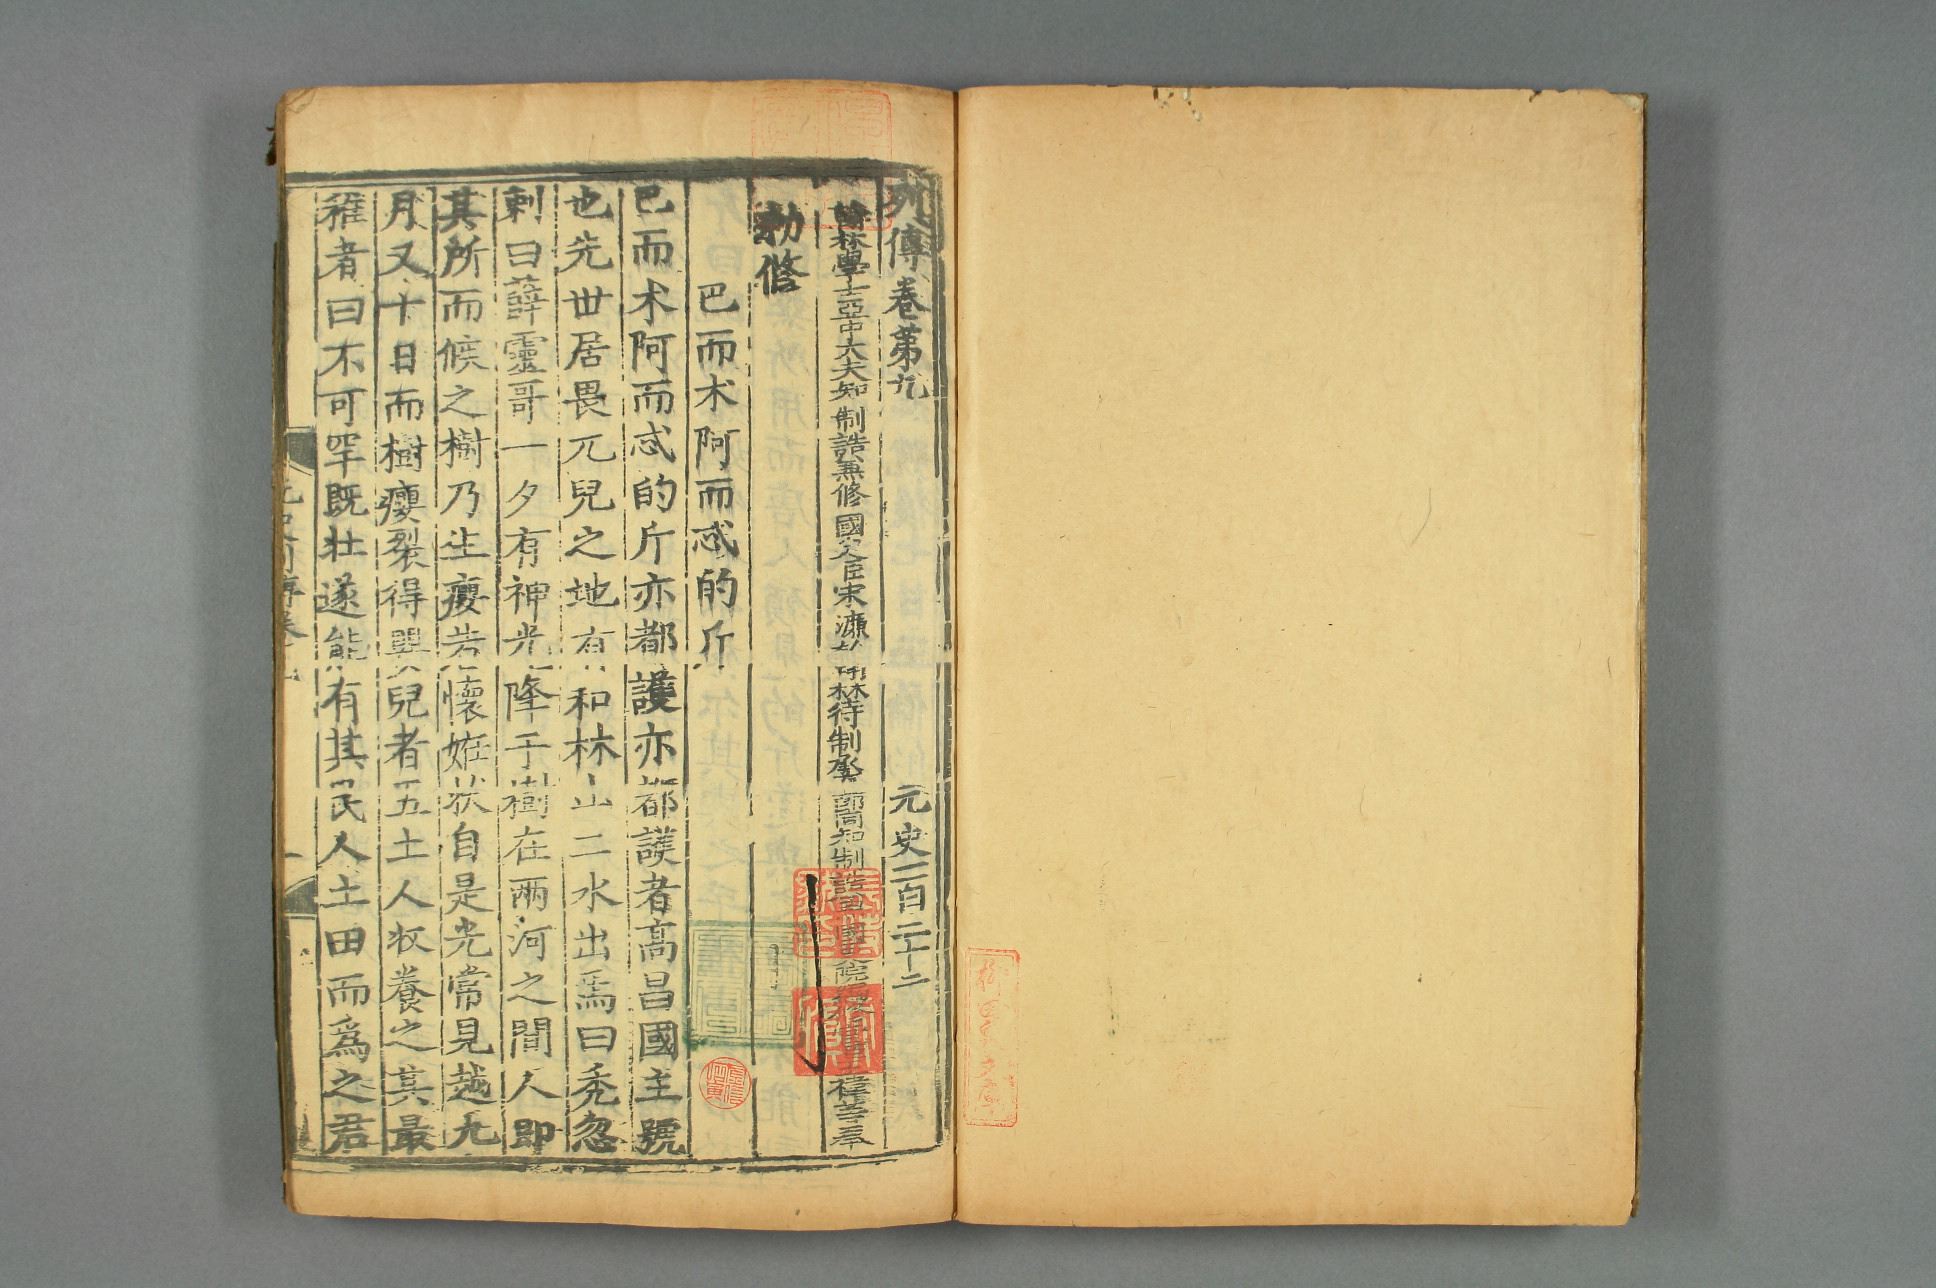 列傳卷第九 元史一百二十二
翰林學士亞中大夫知制誥兼修國史臣宋濂 翰林待制承 郎同知制誥 國史院編 官 王禕等奉
勅修
巴而术阿而忒的斤
巴而术阿而忒的斤亦都護亦都護者高昌國主號
也先世居畏兀兒之地有和林山二水出焉曰禿忽
剌曰薛靈哥一夕有神光降于樹在两河之間人即
其所而候之樹乃生癭若懷妊狀自是光常見越九
月又十日而樹癭裂得嬰兒者五土人收養之其最
稚者曰不可罕既壯遂能有其民人土田而爲之君